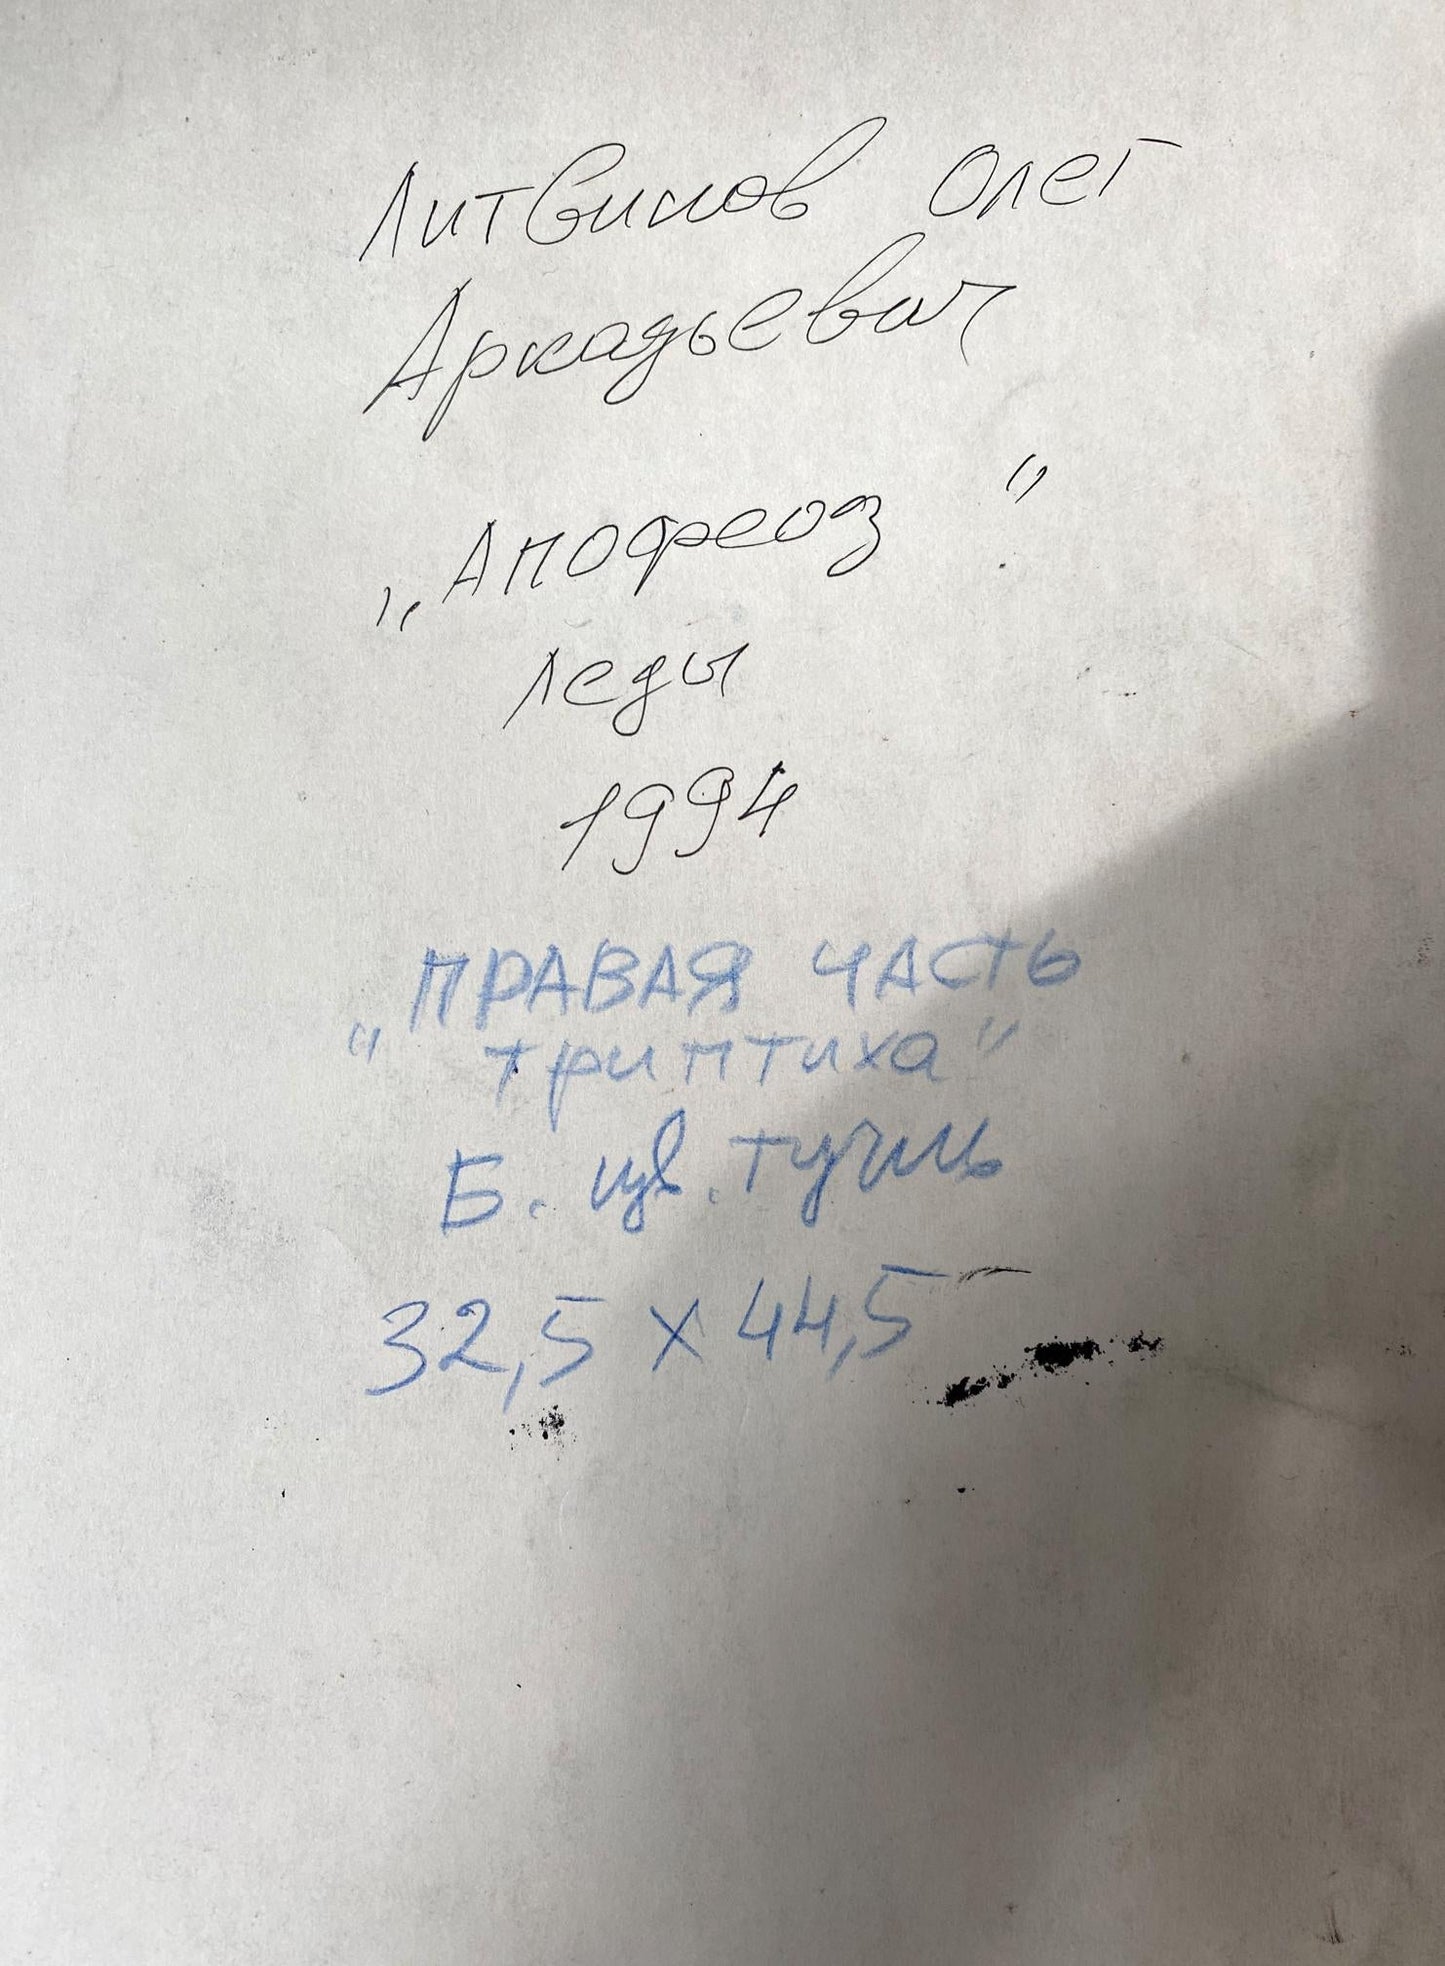 Литвинов Олег
Аркадьевич
„Апофеоз "
Леды
1994
ПРАВАЯ ЧАСТЬ
" триптиха "
Б. цв. тушь
32,5 х 44,5